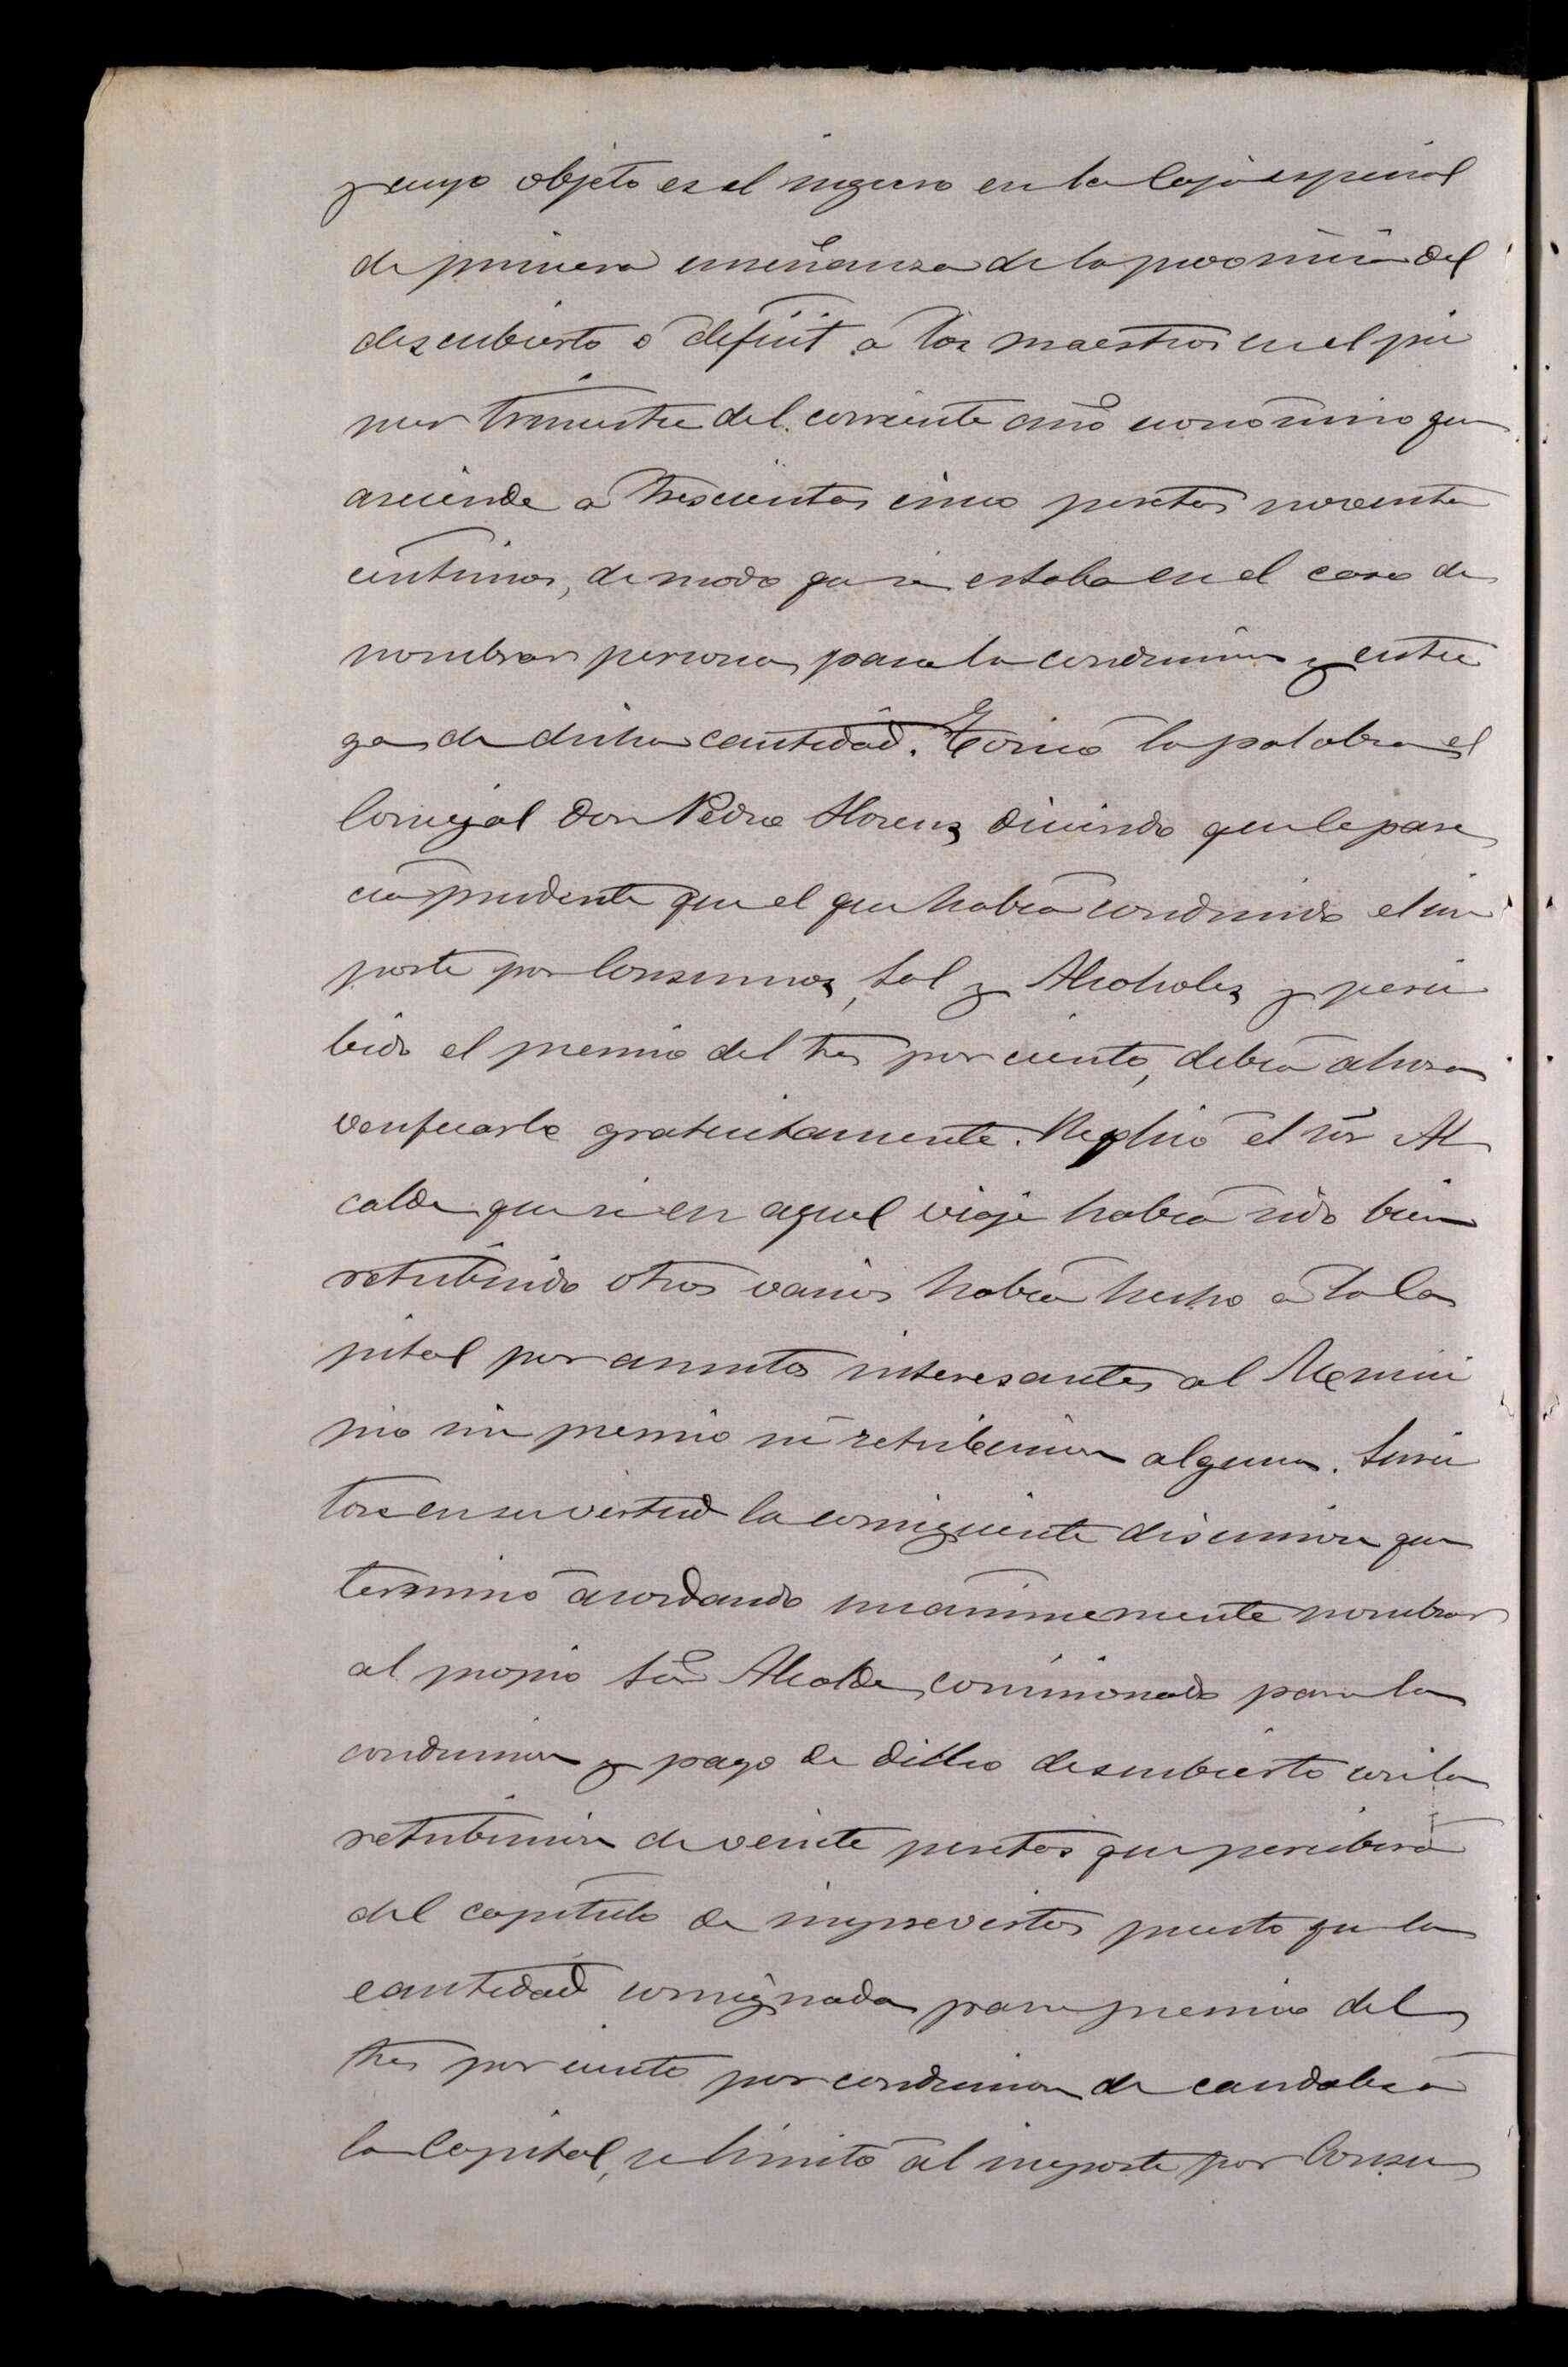 y cuyo objeto es el ingreso en la Caja especial
de primera enseñanza de la provincia del
descubierto o deficit a los maestros en el pri
mer trimestre del corriente año economico que
asciende a trescientas cinco pesetas noventa
centimos, de modo que se estaba en el caso de
nombrar persona para la conduccion y entre
ga de dicha cantidad. Tomó la palabra el
Concejal Don Pedro Llorens diciendo que le pare
cia prudente que el que habia conducido el im
porte por Consumos, Sal y Alcoholes y perci
bido el premio del tres por ciento, debia ahora
verificarlo gratuitamente. Replicó el sor Al
calde que si en aquel viaje habia sido bien
retribuido otros varios habia hecho a la Ca
pital por asuntos interesantes al Munici
pio sin premio ni retribucion alguna. Susci
tose en su virtud la consiguiente discusion que
terminó acordando unanimemente nombrar
al propio Sor Alcalde, comisionado para la
conduccion y pago de dicho descubierto con la
retribucion de veinte pesetas que percibirá
del capitulo de imprevistos puesto que la
cantidad consignada para premio del
tres por ciento por conduccion de caudales a
la Capital, se limitó al importe por Consu